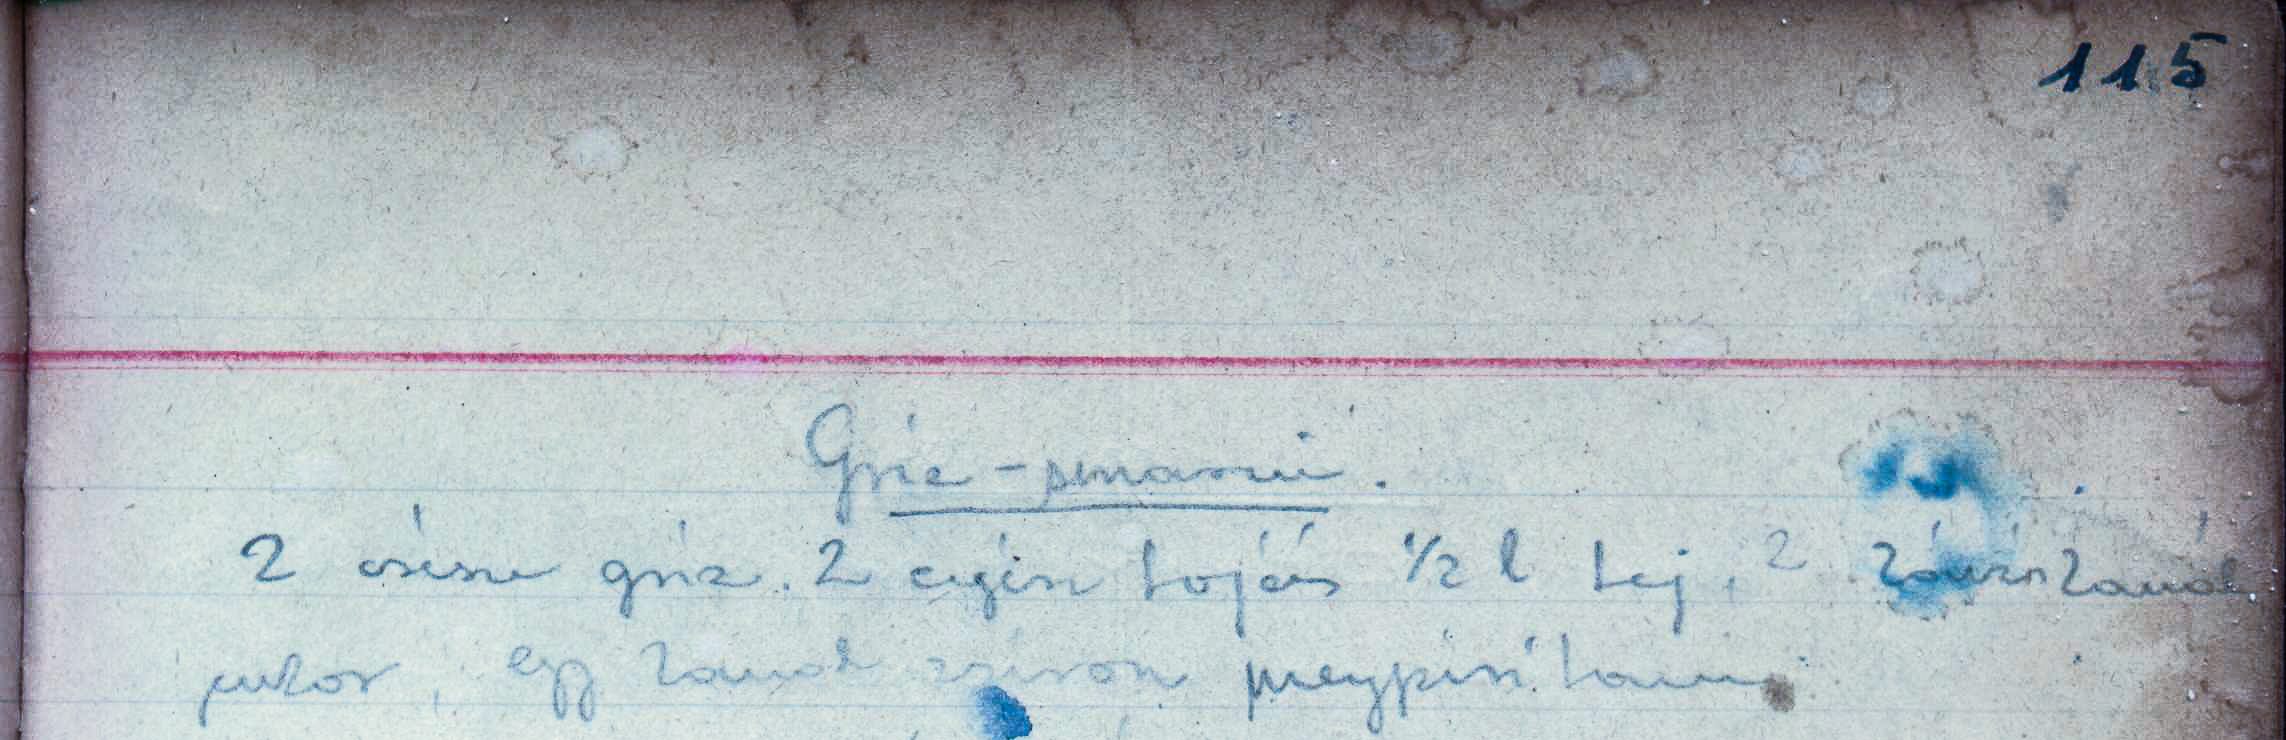 115
Gríz-smarni.
2 csésze gríz. 2 egész tojás 1/2 l tej, 2 kávéskanál
cukor, egy kanál zsíron megpirítani